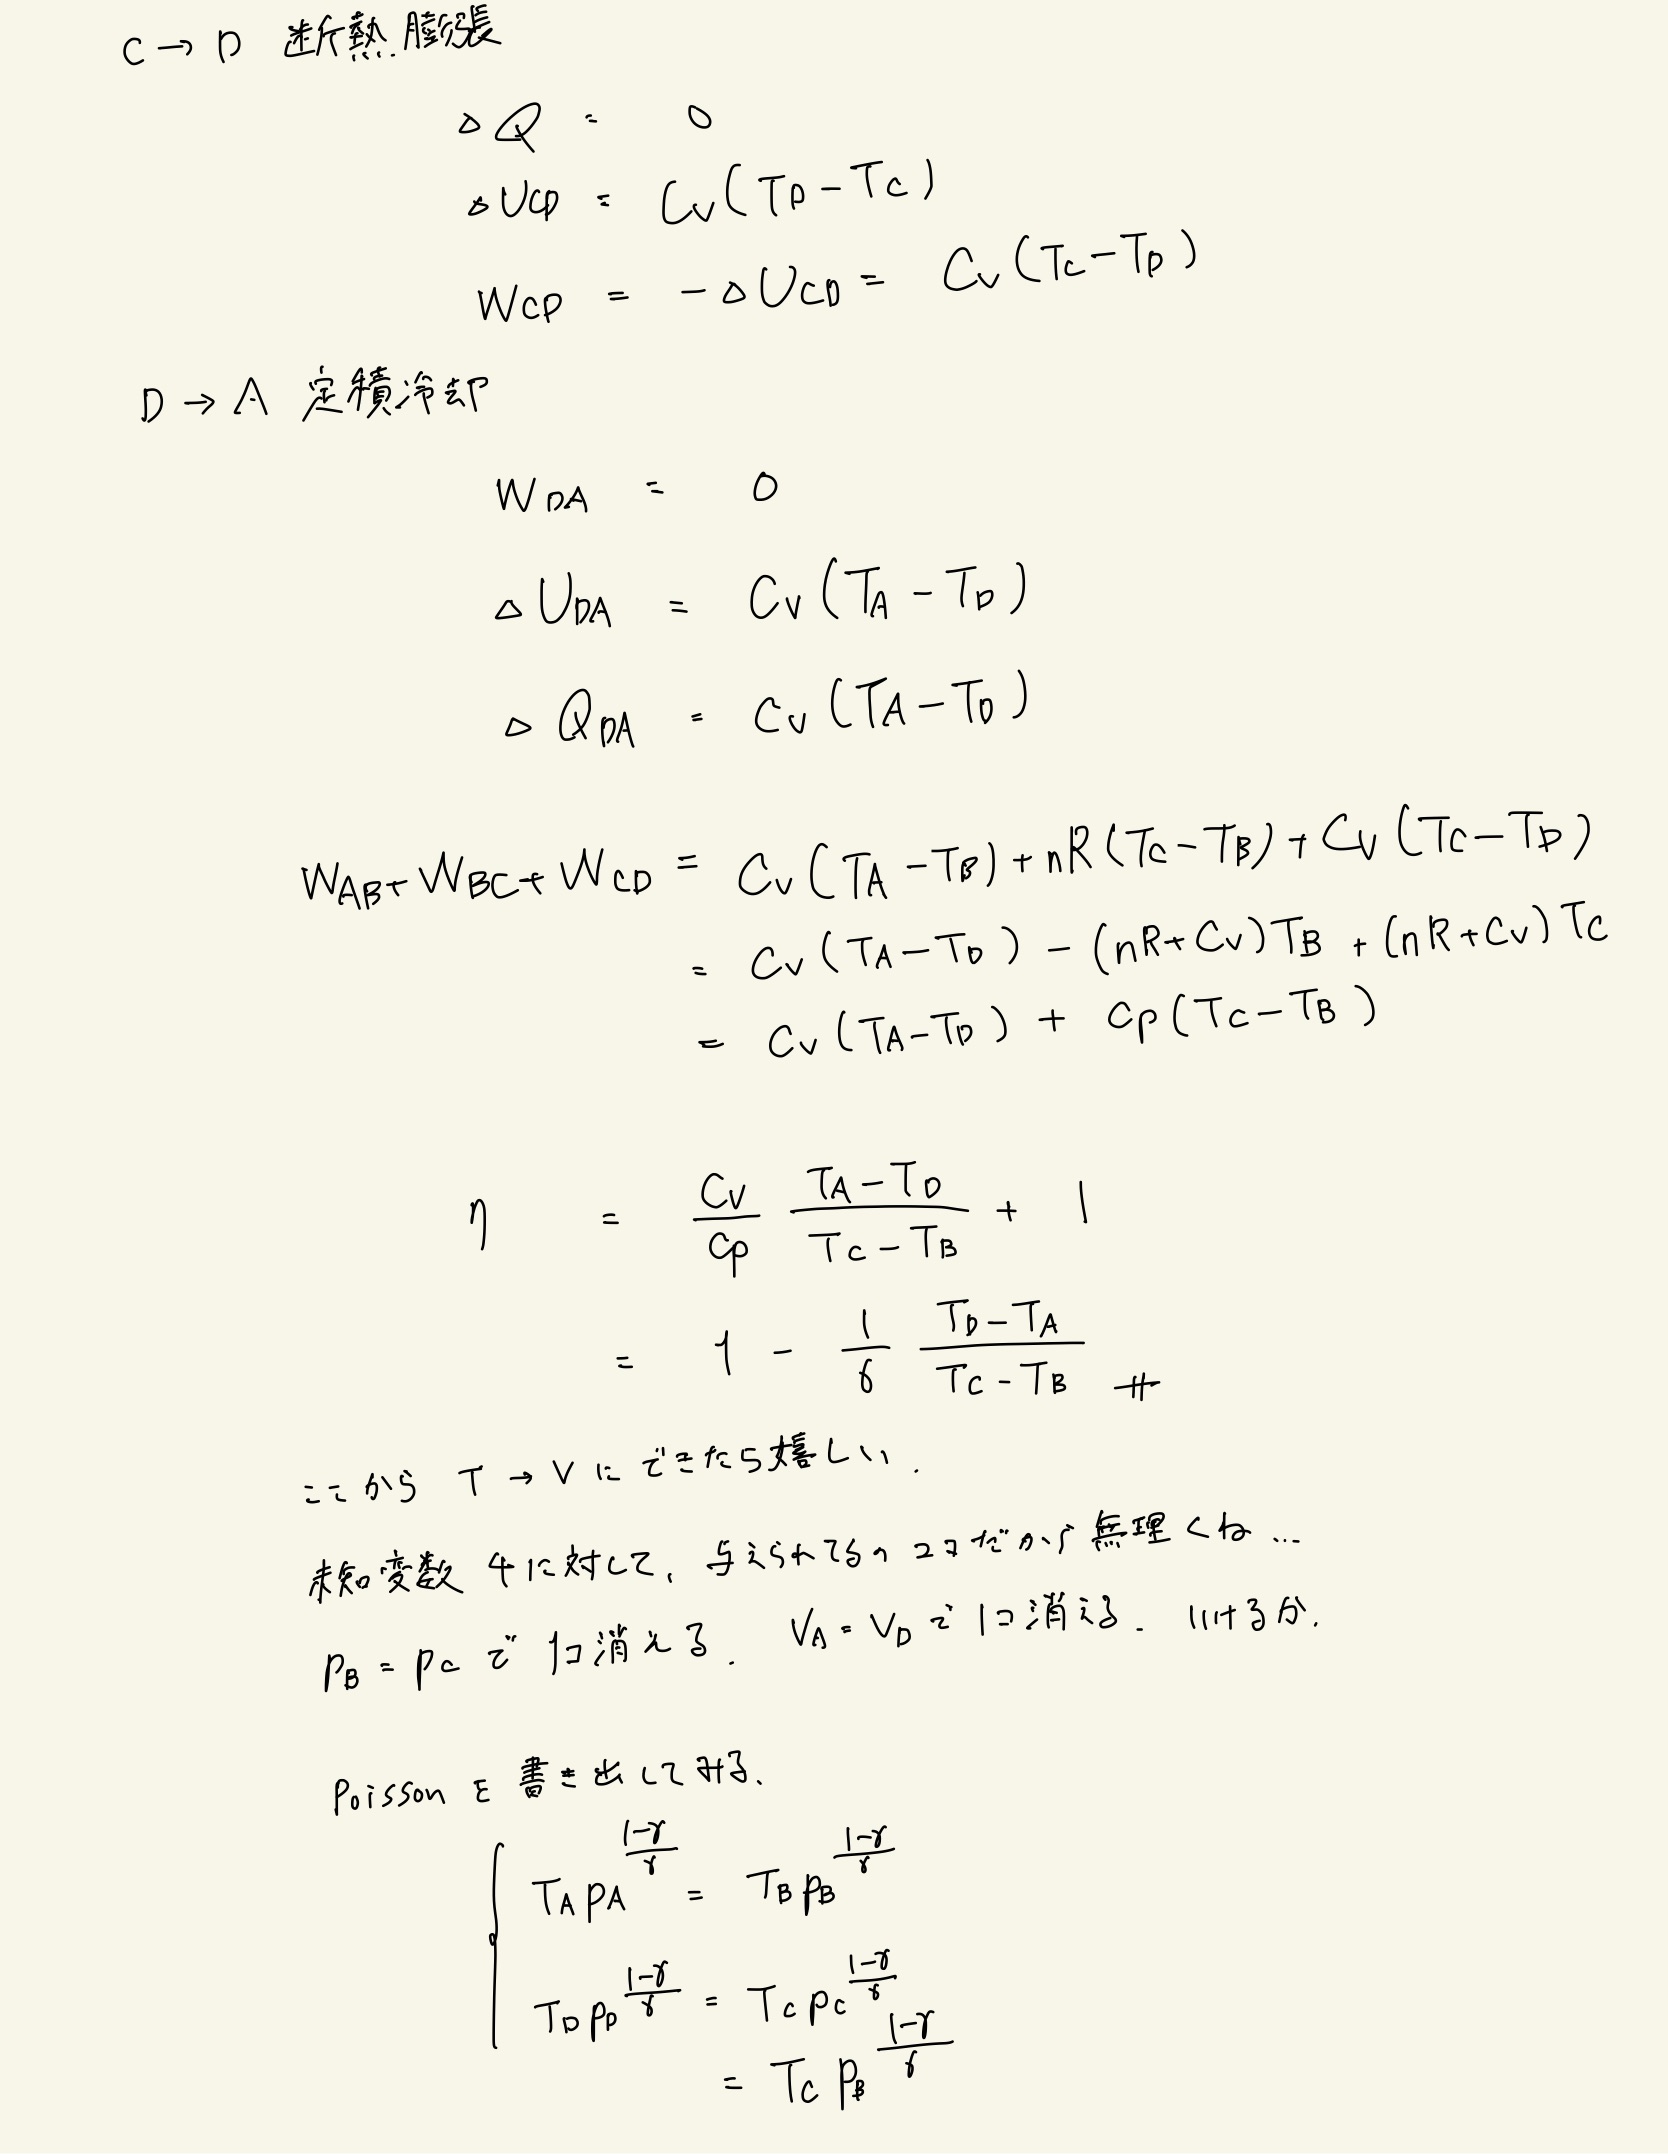 C → D 断熱膨張
△Q = 0
△U_CD = C_V (T_D - T_C)
W_CD = - △U_CD = C_V (T_C - T_D)
D → A 定積冷却
W_DA = 0
△U_DA = C_V (T_A - T_D)
△Q_DA = C_V (T_A - T_D)
W_AB + W_BC + W_CD = C_V (T_A - T_B) + nR (T_C - T_B) + C_V (T_C - T_D)
= C_V (T_A - T_D) - (nR + C_V) T_B + (nR + C_V) T_C
= C_V (T_A - T_D) + C_p (T_C - T_B)
η = \frac{C_V}{C_p} \frac{T_A - T_D}{T_C - T_B} + 1
= 1 - \frac{1}{γ} \frac{T_D - T_A}{T_C - T_B} #
ここから T → V にできたら嬉しい.
未知変数 4に対して、与えられてるの2コだから無理くね…
p_B = p_C で 1コ消える. V_A = V_D で 1コ消える. いけるか.
Poisson を書き出してみる、
T_A p_A^{\frac{1-γ}{γ}} = T_B p_B^{\frac{1-γ}{γ}}
T_D p_D^{\frac{1-γ}{γ}} = T_C p_C^{\frac{1-γ}{γ}}
= T_C p_B^{\frac{1-γ}{γ}}